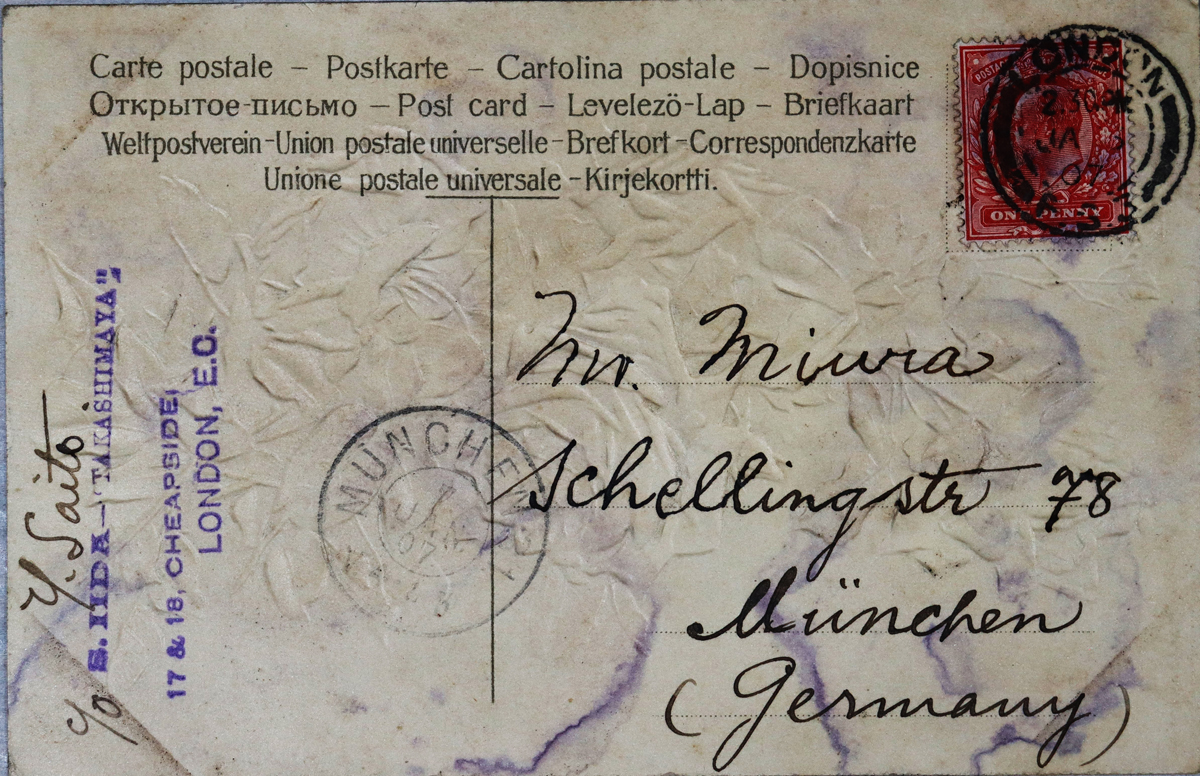 Carte postale – Postkarte – Cartolina postale – Dopisnice
Открытое-письмо – Post card – Levelező-Lap – Briefkaart
Weltpostverein-Union postale universelle-Brefkort-Correspondenzkarte
Unione postale universale-Kirjekortti.
LONDON
2.30
JA
07
ONE PENNY
Mr. Miura
Schellingstr 78
München
(Germany)
MÜNCHEN
Y. Saito
c/o S. IIDA–"TAKASHIMAYA"
17 & 18, CHEAPSIDE,
LONDON, E.C.